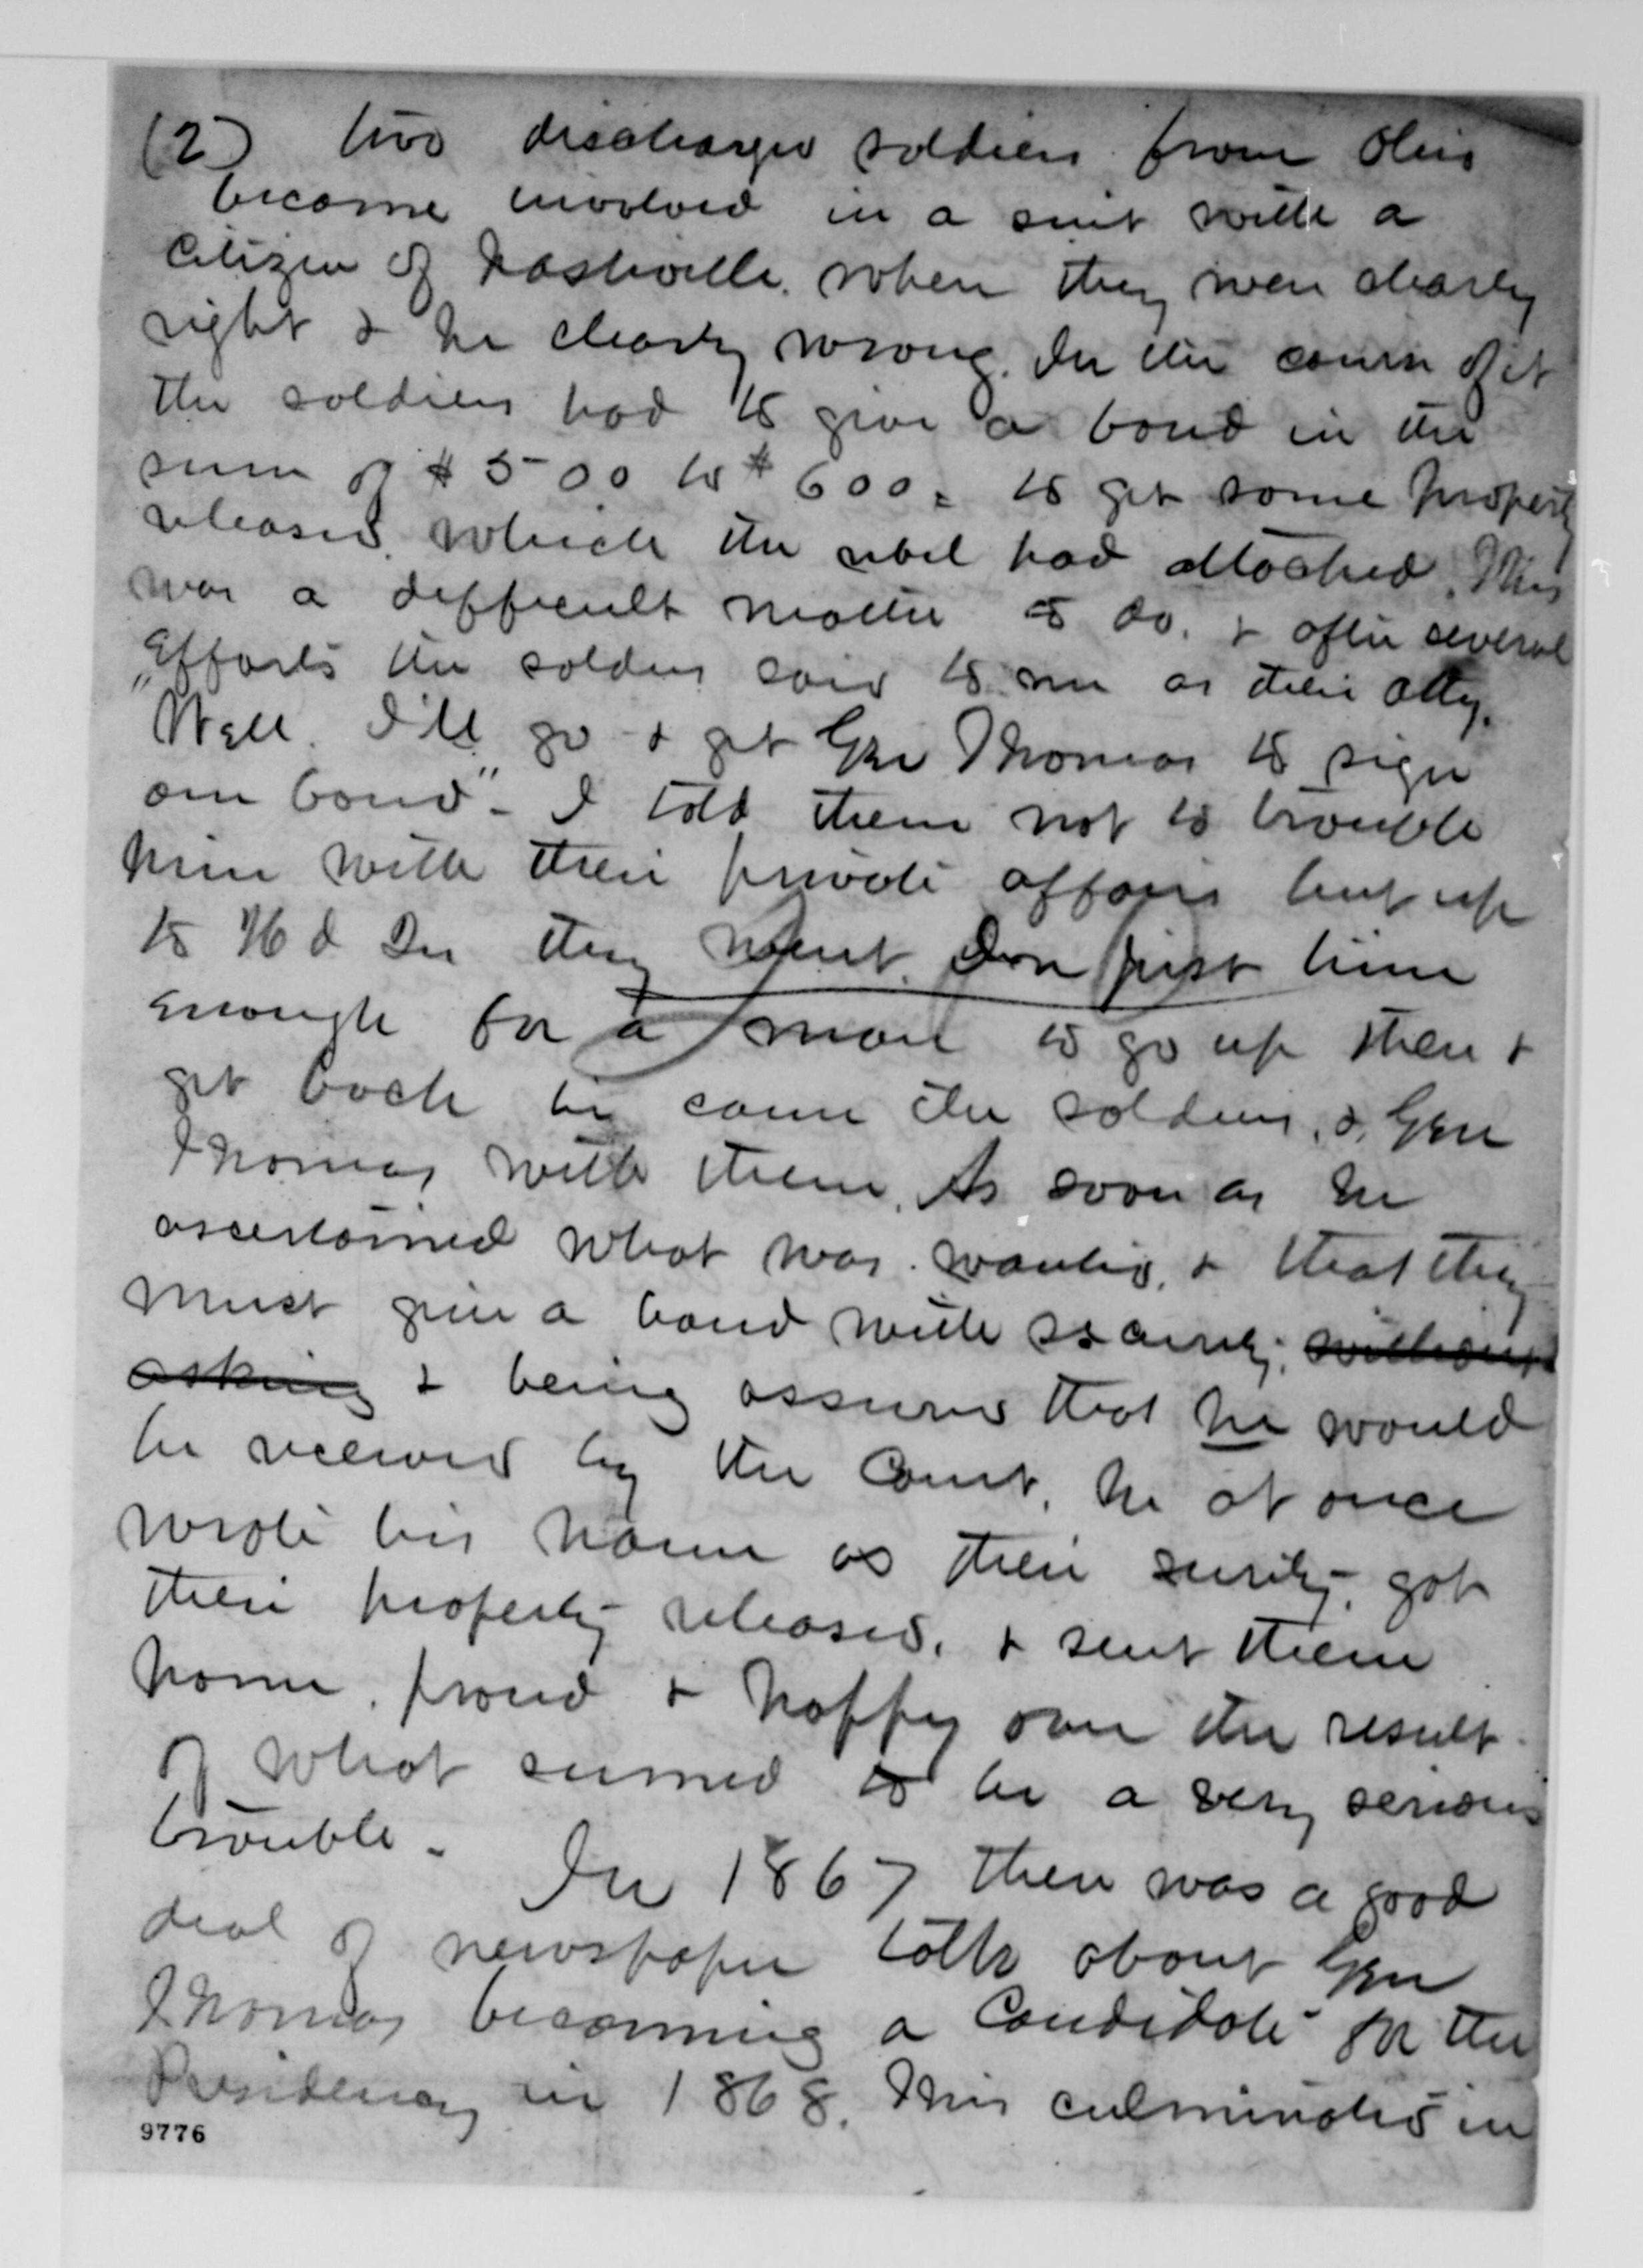 (2) two discharged soldiers from Ohio
became involved in a suit with a
Citizen of Nashville. when they were clearly
right & he clearly wrong. In the course of it
the soldiers had to give a bond in the
sum of $500 to $600 = to get some property
released. which the rebel had attached. This
was a difficult matter to do. & after several
efforts the soldiers said to me as their atty.
"Well I'll go & get Gen Thomas to sign
our bond" - I told them not to trouble
him with their private affairs but up
to Hd Qrs they went. In just time
enough for a man to go up there &
get back he came the soldiers, & Gen
Thomas with them. As soon as he
ascertained what was wanted, & that they
must give a bond with security, without
asking & being assured that he would
be received by the Court, he at once
wrote his name as their surety, got
their property released, & sent them
home, proud & happy over the result
of what seemed to be a very serious
trouble -
In 1867 there was a good
deal of newspaper talk about Gen
Thomas becoming a Candidate for the
Presidency in 1868. This culminated in
9776